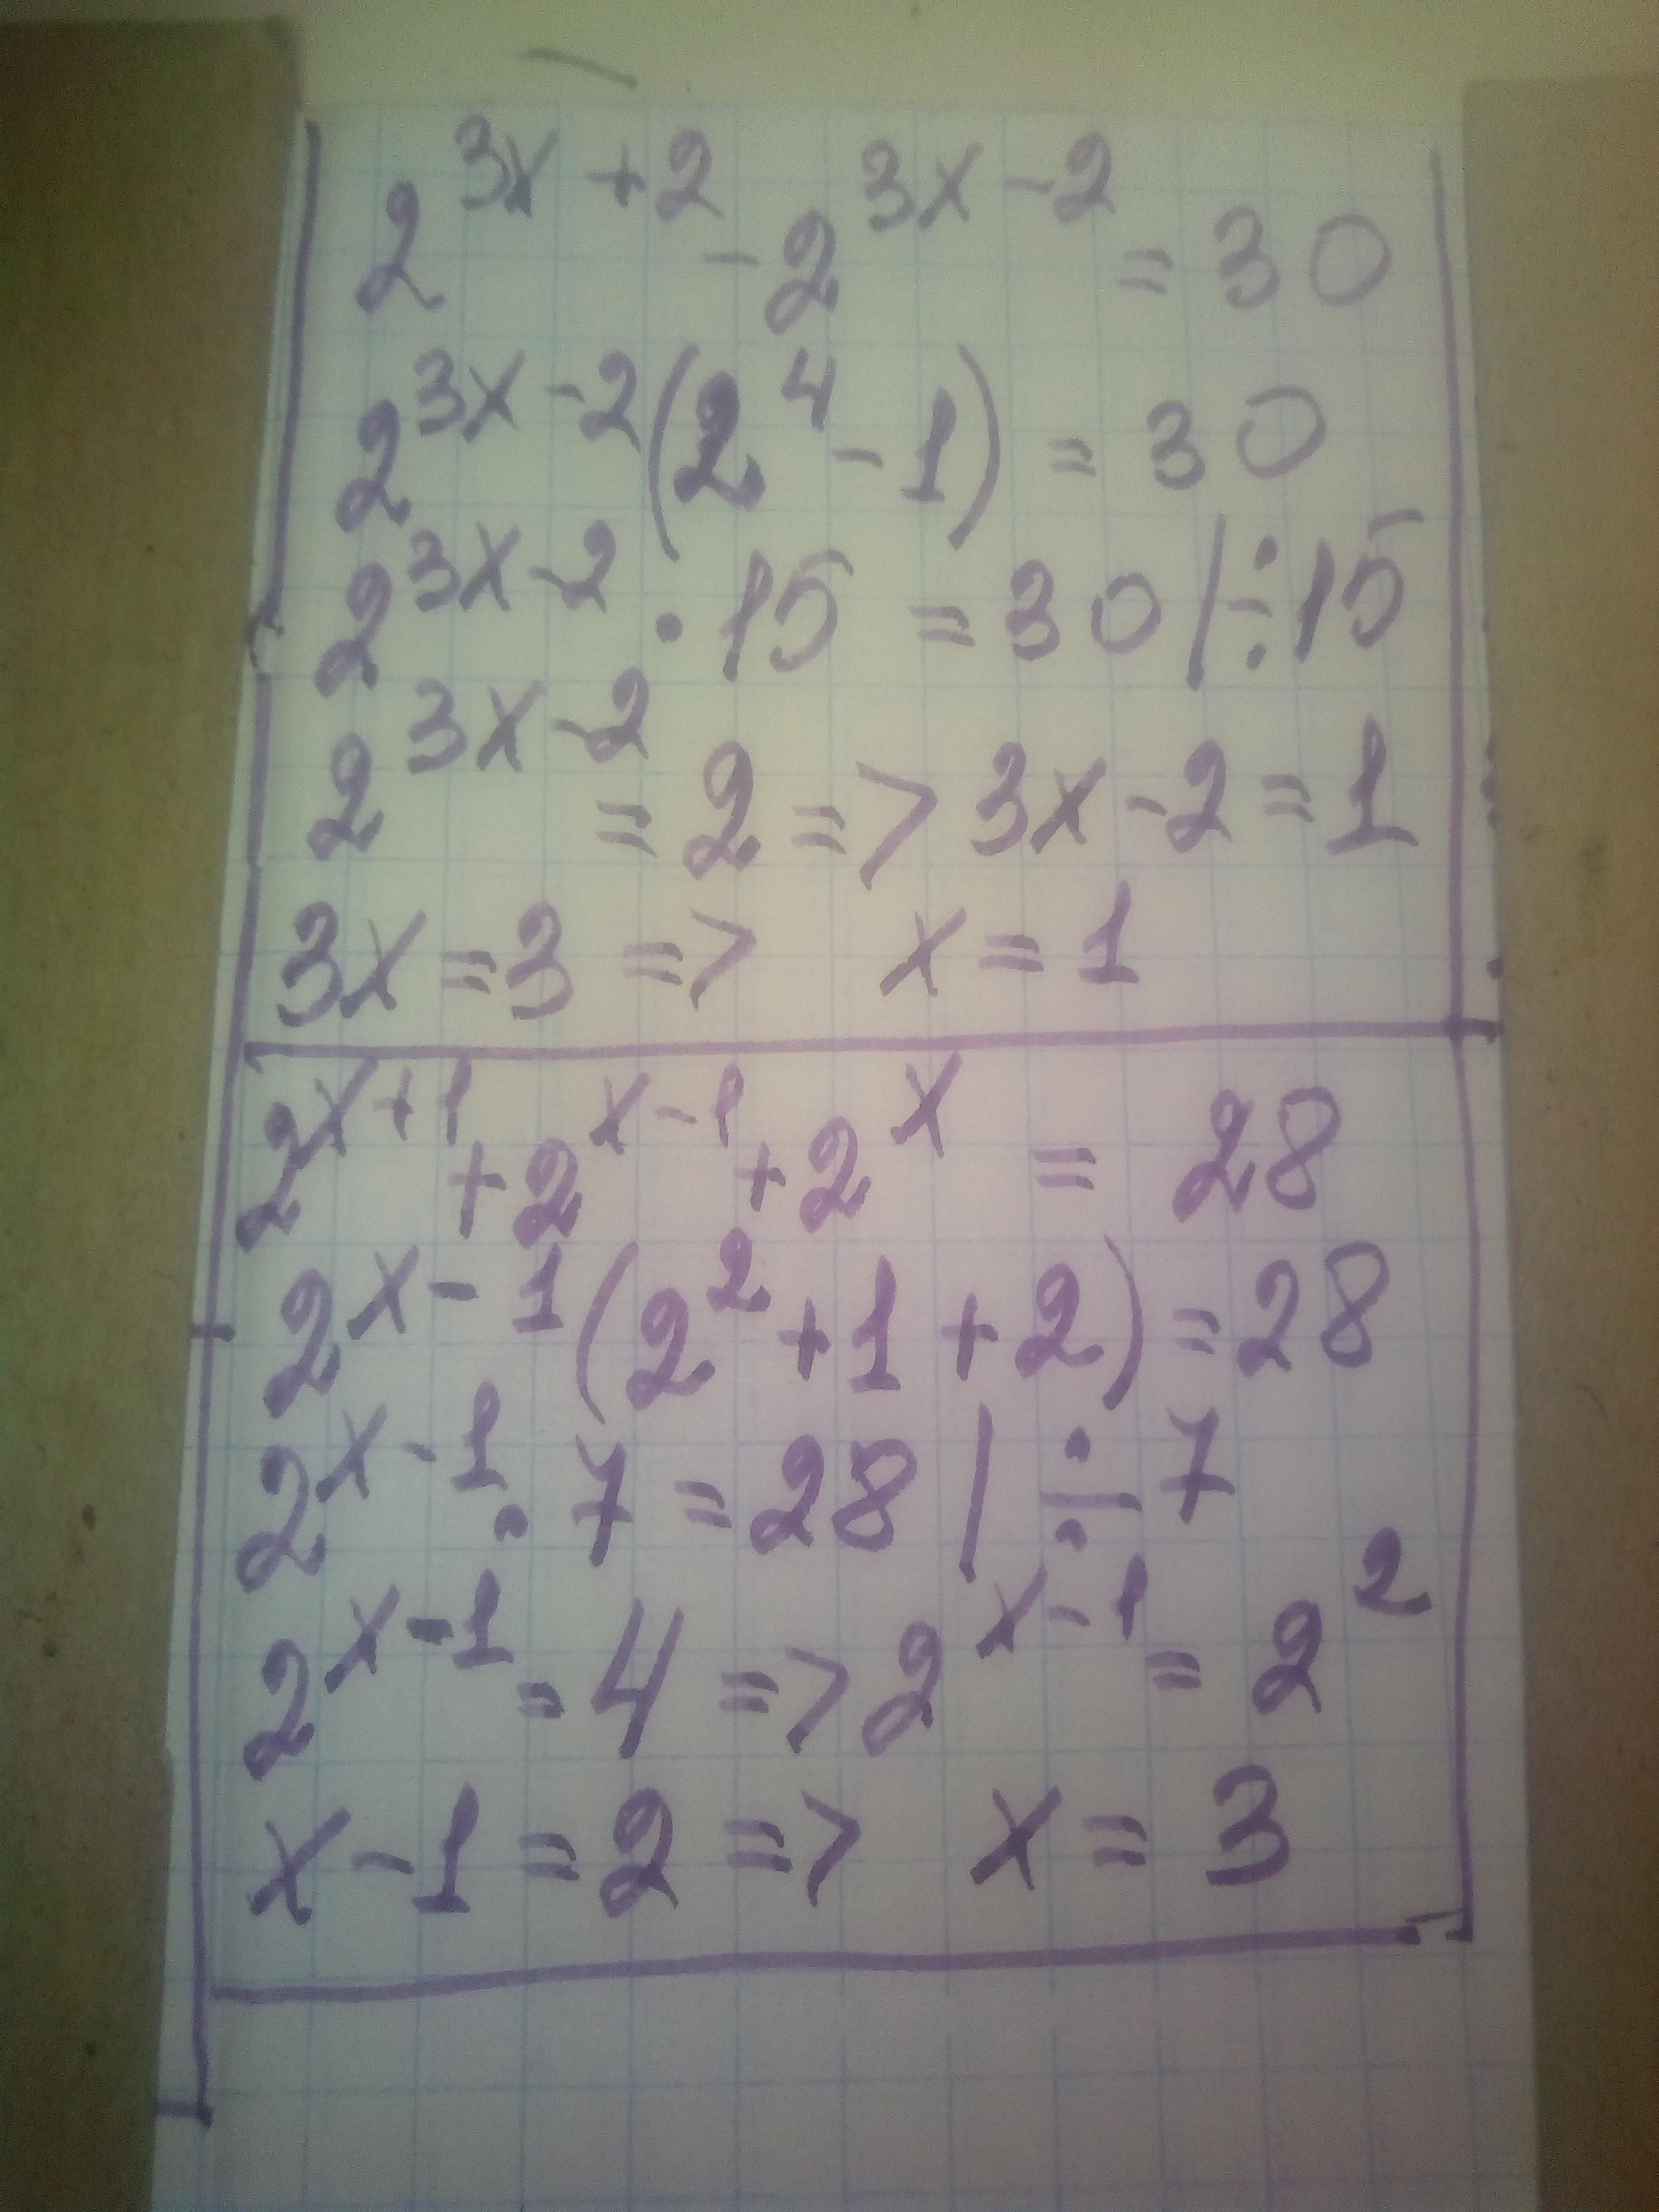 2^{3x+2} - 2^{3x-2} = 30
2^{3x-2}(2^4 - 1) = 30
2^{3x-2} · 15 = 30 | ÷ 15
2^{3x-2} = 2 => 3x - 2 = 1
3x = 3 => x = 1
2^{x+1} + 2^{x-1} + 2^x = 28
2^{x-1}(2^2 + 1 + 2) = 28
2^{x-1} · 7 = 28 | ÷ 7
2^{x-1} = 4 => 2^{x-1} = 2^2
x - 1 = 2 => x = 3